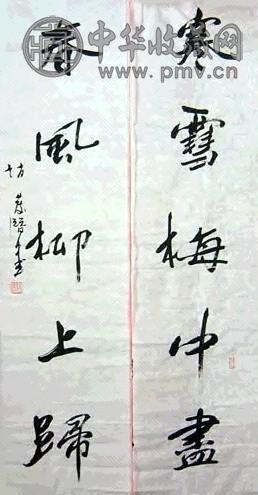 寒雪梅中盡
春風柳上歸
中华收藏网
www.pmv.cn